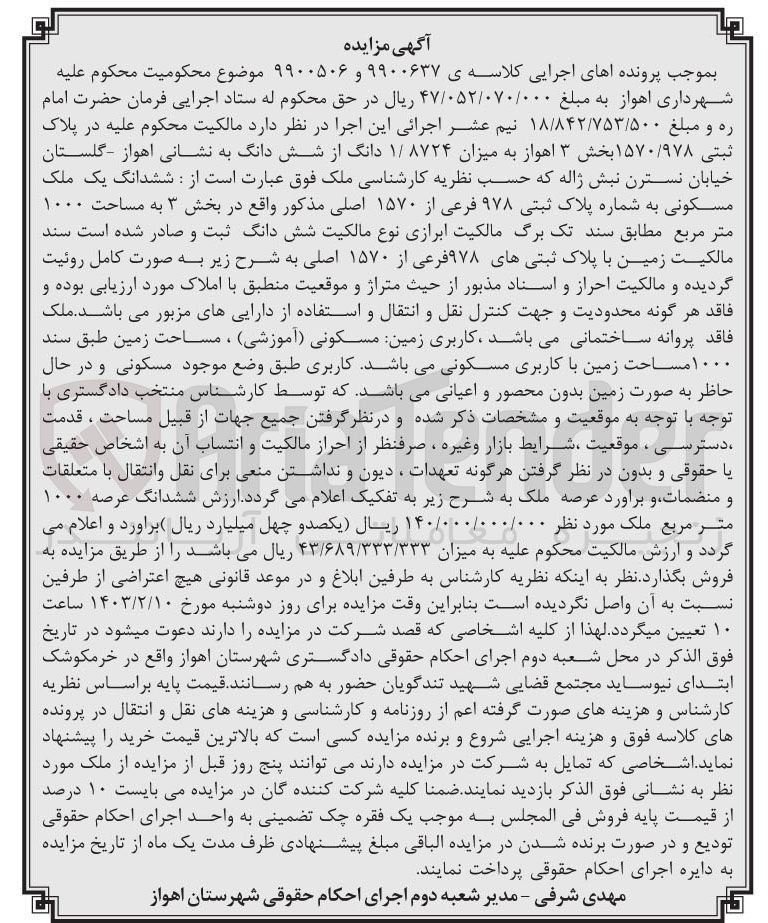 آگهی مزایده
بموجب پرونده اهای اجرایی کلاسه ی ۹۹۰۰۶۳۷ و ۹۹۰۰۵۰۶ موضوع محکومیت محکوم علیه
شهرداری اهواز به مبلغ ۴۷/۰۵۲/۰۷۰/۰۰۰ ریال در حق محکوم له ستاد اجرایی فرمان حضرت امام
ره و مبلغ ۱۸/۸۴۲/۷۵۳/۵۰۰ نیم عشر اجرائی این اجرا در نظر دارد مالکیت محکوم علیه در پلاک
ثبتی ۱۵۷۰/۹۷۸بخش ۳ اهواز به میزان ۸۷۲۴ /۱ دانگ از شش دانگ به نشانی اهواز -گلستان
خیابان نسترن نبش ژاله که حسب نظریه کارشناسی ملک فوق عبارت است از : ششدانگ یک ملک
مسکونی به شماره پلاک ثبتی ۹۷۸ فرعی از ۱۵۷۰ اصلی مذکور واقع در بخش ۳ به مساحت ۱۰۰۰
متر مربع مطابق سند تک برگ مالکیت ابرازی نوع مالکیت شش دانگ ثبت و صادر شده است سند
مالکیت زمین با پلاک ثبتی های ۹۷۸فرعی از ۱۵۷۰ اصلی به شرح زیر به صورت کامل روئیت
گردیده و مالکیت احراز و اسناد مذبور از حیث متراژ و موقعیت منطبق با املاک مورد ارزیابی بوده و
فاقد هر گونه محدودیت و جهت کنترل نقل و انتقال و استفاده از دارایی های مزبور می باشد.ملک
فاقد پروانه ساختمانی می باشد ،کاربری زمین: مسکونی (آموزشی) ، مساحت زمین طبق سند
۱۰۰۰مساحت زمین با کاربری مسکونی می باشد. کاربری طبق وضع موجود مسکونی و در حال
حاظر به صورت زمین بدون محصور و اعیانی می باشد. که توسط کارشناس منتخب دادگستری با
توجه با توجه به موقعیت و مشخصات ذکر شده و درنظرگرفتن جمیع جهات از قبیل مساحت ، قدمت
،دسترسی ، موقعیت ،شرایط بازار وغیره ، صرفنظر از احراز مالکیت و انتساب آن به اشخاص حقیقی
یا حقوقی و بدون در نظر گرفتن هرگونه تعهدات ، دیون و نداشتن منعی برای نقل وانتقال با متعلقات
و منضمات،و براورد عرصه ملک به شرح زیر به تفکیک اعلام می گردد.ارزش ششدانگ عرصه ۱۰۰۰
متر مربع ملک مورد نظر ۱۴۰/۰۰۰/۰۰۰/۰۰۰ ریال (یکصدو چهل میلیارد ریال )براورد و اعلام می
گردد و ارزش مالکیت محکوم علیه به میزان ۴۳/۶۸۹/۳۳۳/۳۳۳ ریال می باشد را از طریق مزایده به
فروش بگذارد.نظر به اینکه نظریه کارشناس به طرفین ابلاغ و در موعد قانونی هیچ اعتراضی از طرفین
نسبت به آن واصل نگردیده است بنابراین وقت مزایده برای روز دوشنبه مورخ ۱۴۰۳/۲/۱۰ ساعت
۱۰ تعیین میگردد.لهذا از کلیه اشخاصی که قصد شرکت در مزایده را دارند دعوت میشود در تاریخ
فوق الذکر در محل شعبه دوم اجرای احکام حقوقی دادگستری شهرستان اهواز واقع در خرمکوشک
ابتدای نیوساید مجتمع قضایی شهید تندگویان حضور به هم رسانند.قیمت پایه براساس نظریه
کارشناس و هزینه های صورت گرفته اعم از روزنامه و کارشناسی و هزینه های نقل و انتقال در پرونده
های کلاسه فوق و هزینه اجرایی شروع و برنده مزایده کسی است که بالاترین قیمت خرید را پیشنهاد
نماید.اشخاصی که تمایل به شرکت در مزایده دارند می توانند پنج روز قبل از مزایده از ملک مورد
نظر به نشانی فوق الذکر بازدید نمایند.ضمنا کلیه شرکت کننده گان در مزایده می بایست ۱۰ درصد
از قیمت پایه فروش فی المجلس به موجب یک فقره چک تضمینی به واحد اجرای احکام حقوقی
تودیع و در صورت برنده شدن در مزایده الباقی مبلغ پیشنهادی ظرف مدت یک ماه از تاریخ مزایده
به دایره اجرای احکام حقوقی پرداخت نمایند.
مهدی شرفی - مدیر شعبه دوم اجرای احکام حقوقی شهرستان اهواز
AriaTender